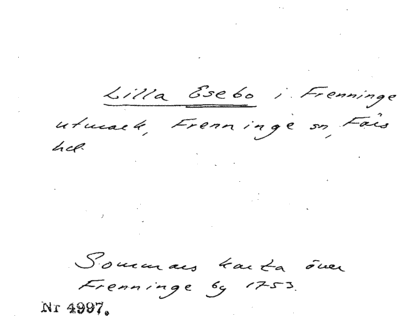 Lilla Esebo i Frenninge
utmark, Frenninge sn, Färs
hd.
Sommars karta över
Frenninge by 1753.
Nr 4997.